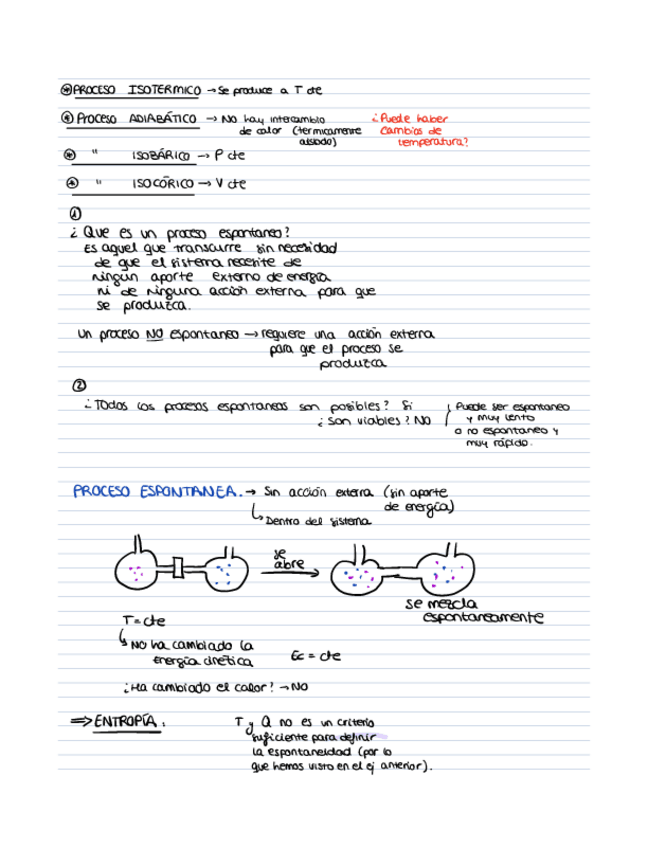 * PROCESO ISOTERMICO → se produce a T cte
* Proceso ADIABÁTICO → No hay intercambio ¿Puede haber
de calor (termicamente cambios de
aislado) temperatura?
* " ISOBÁRICO → P cte
* " ISOCÓRICO → V cte
①
¿Que es un proceso espontaneo?
Es aquel que transcurre sin necesidad
de que el sistema necesite de
ningún aporte externo de energía
ni de ninguna acción externa para que
se produzca.
Un proceso NO espontaneo → requiere una acción externa
para que el proceso se
produzca
②
¿Todos los procesos espontaneos son posibles? Si
¿Son viables? NO
Puede ser espontaneo
y muy lento
o no espontaneo y
muy rápido.
PROCESO ESPONTANEA. → Sin acción externa (sin aporte
de energía)
Dentro del sistema
se
abre
se mezcla
espontaneamente
T = cte
No ha cambiado la
energía cinética
Ec = cte
¿Ha cambiado el calor? → NO
⇒ ENTROPÍA: T y Q no es un criterio
suficiente para definir
la espontaneidad (por lo
que hemos visto en el ej anterior).